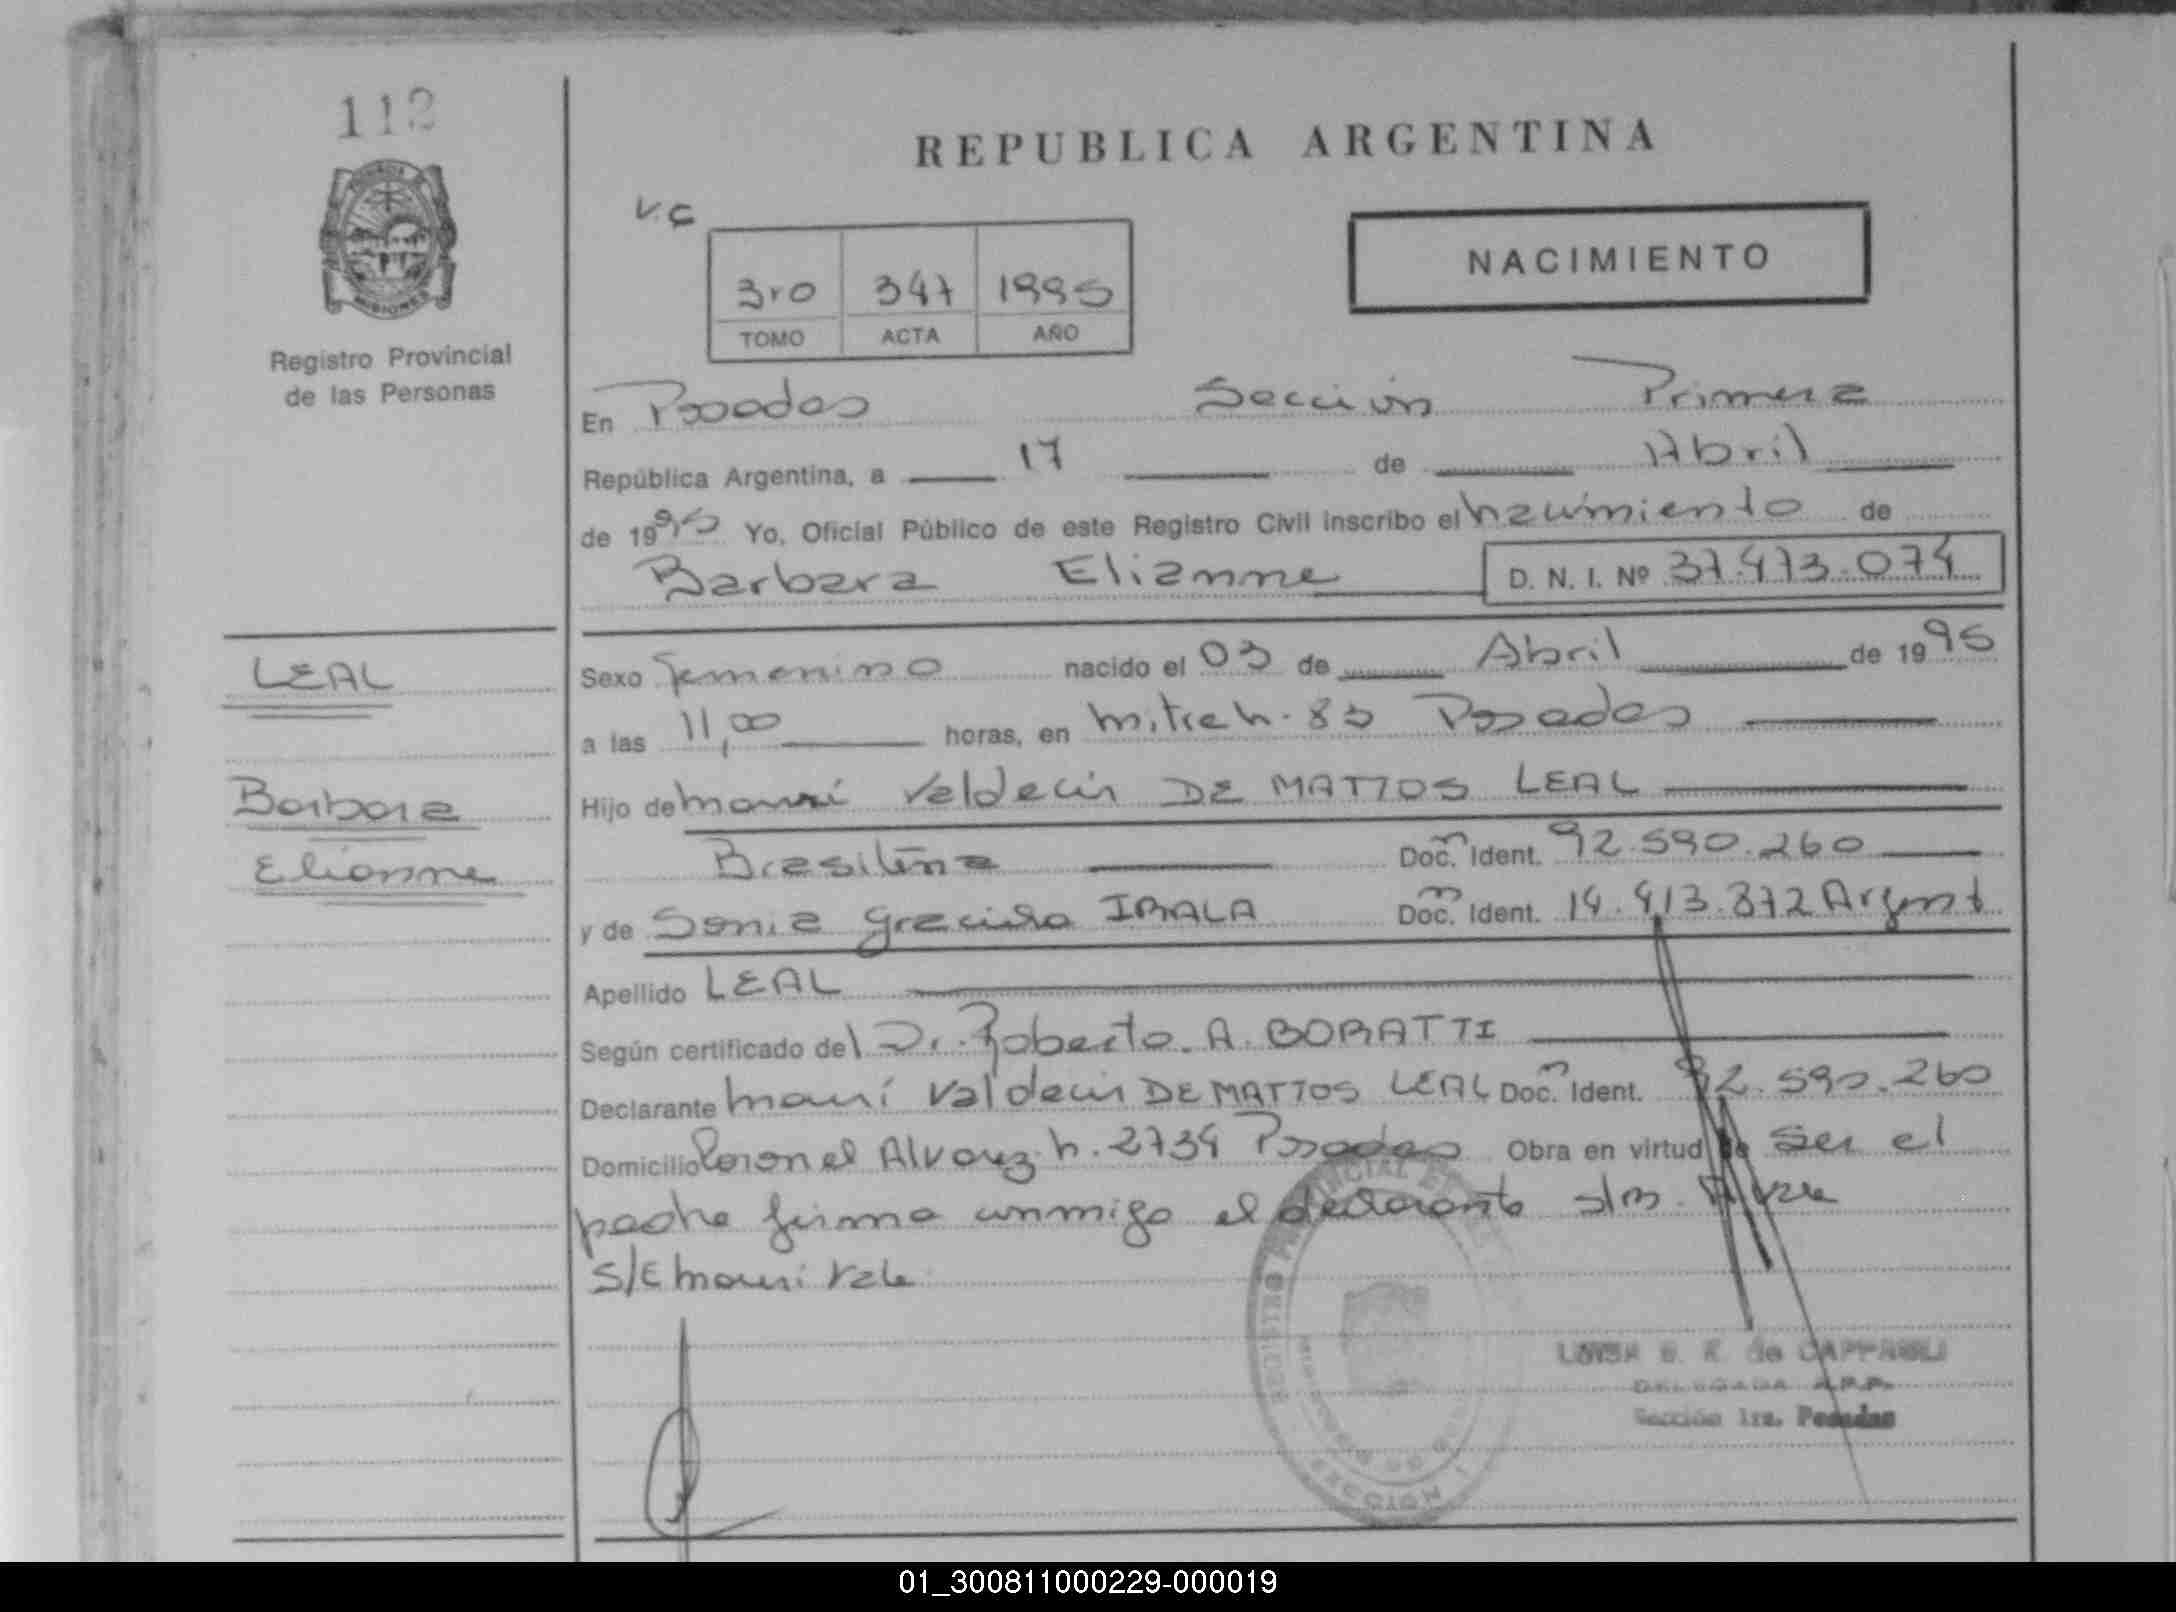 112
REPUBLICA ARGENTINA
V.C
NACIMIENTO
3ro 347 1995
TOMO ACTA AÑO
Registro Provincial
de las Personas
En Posadas Sección Primera
República Argentina, a 17 de Abril
de 1995 Yo, Oficial Público de este Registro Civil inscribo el nacimiento de
Barbara Elianne D. N. I. Nº 37.473.074
LEAL
Barbara
Elianne
Sexo femenino nacido el 03 de Abril de 1995
a las 11,00 horas, en Mitre n. 83 Posadas
Hijo de Mauri Valdecir DE MATTOS LEAL
Brasileña Docn. Ident. 92.590.260
y de Sonia Graciela IRALA Docn. Ident. 14.413.872 Argent
Apellido LEAL
Según certificado del Dr. Roberto A. BORATTI
Declarante Mauri Valdecir DE MATTOS LEAL Docn. Ident. 92.590.260
Domicilio Coronel Alvarez n. 2734 Posadas Obra en virtud de ser el
padre firma conmigo el declarante
S/E Mauri Vale
REGISTRO PROVINCIAL
SECCION 1
de CAPPAGLI
DELEGADA R.P.P.
Sección 1ra. Posadas
01_300811000229-000019